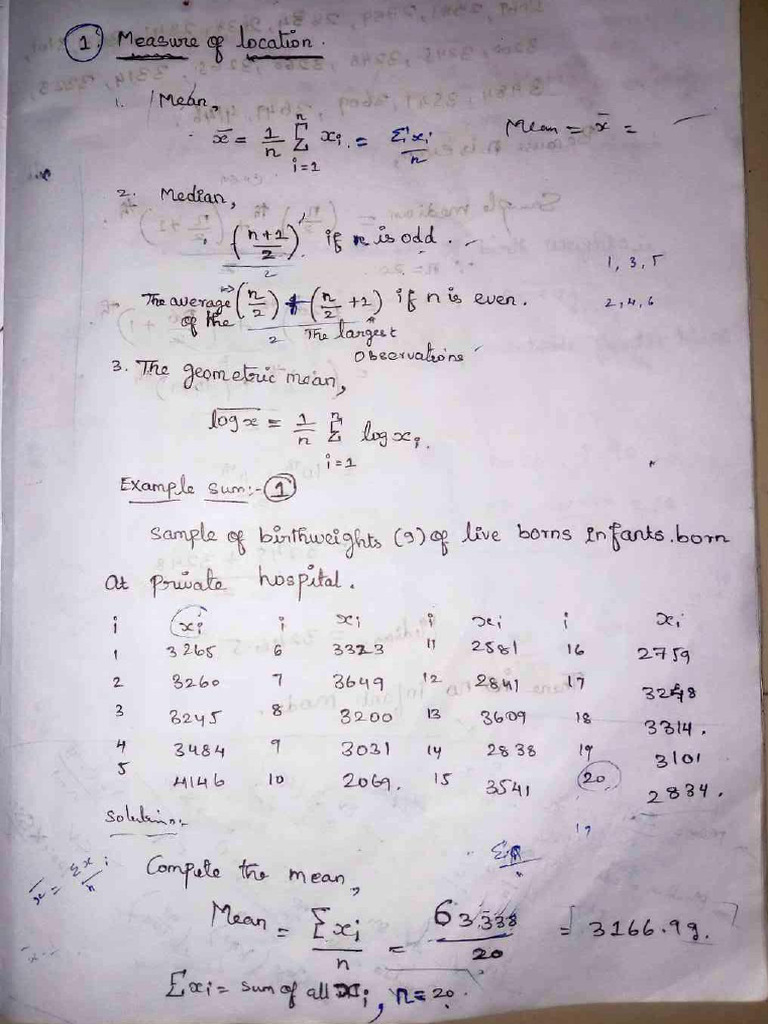 1 Measure of location.
1. Mean,
x̄ = 1/n Σ i=1 n xi. = Σxi/n Mean = x̄ =
2. Median,
(n+1/2)th if n is odd.
2
1, 3, 5
The average of the (n/2)th + (n/2 +1) if n is even.
2, 4, 6
2 The largest
observations
3. The geometric mean,
log x = 1/n Σ i=1 n log xi.
Example sum:- 1
Sample of birthweights (g) of live borns infants. born
at private hospital.
i xi i xi i xi i xi
1 3265 6 3323 11 2581 16 2759
2 3260 7 3649 12 2841 17 3248
3 3245 8 3200 13 3609 18 3314.
4 3484 9 3031 14 2838 19 3101
5 4146 10 2069. 15 3541 20 2834.
Solution:-
x̄ = Σxi/n
Compute the mean,
Mean = Σxi/n = 63,338/20 = 3166.9g.
Σxi = sum of all xi, n = 20.